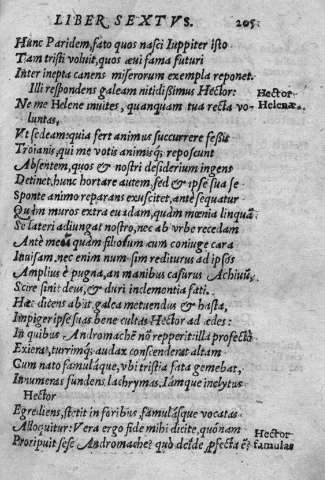 LIBER SEXTVS. 205
Hunc Paridem, fato quos nasci Iuppiter isto
Tam tristi voluit, quos æui fama futuri
Inter inepta canens miserorum exempla reponet.
Illi respondens galeam nitidißimus Hector: Hector
Ne me Helene inuites, quanquam tua recta vo- Helenæ.
luntas,
Vt sedeam: quia fert animus succurrere feßis
Troianis, qui me votis animisq; reposcunt
Absentem, quos & nostri desiderium ingens
Detinet, hunc hortare autem, sed & ipse sua se
Sponte animo reparans exuscitet, ante sequatur
Quàm muros extra euadam, quàm mœnia linquã:
Se lateri adiungat nostro, nec ab vrbe recedam
Antè meũ quàm filiolum cum coniuge cara
Inuisam, nec enim num sim rediturus ad ipsos
Amplius è pugna, an manibus casurus Achiuũ,
Scire sinit deus, & duri indementia fati.
Hæc dicens abiit galea metuendus & hasta,
Impiger ipse suas bene cultas Hector ad ædes:
In quibus Andromachẽ nõ repperit: illa profectò
Exierat, turrimq; audax conscenderat altam
Cum nato famulaque, vbi tristia fata gemebat,
Innumeras fundens lachrymas. Iamque inclytus
Hector
Egrediens, stetit in foribus, famulásque vocatas
Alloquitur: Vera ergo fide mihi dicite, quónam Hector
Proripuit sese Andromache? quò deīde pfecta ē? famulas